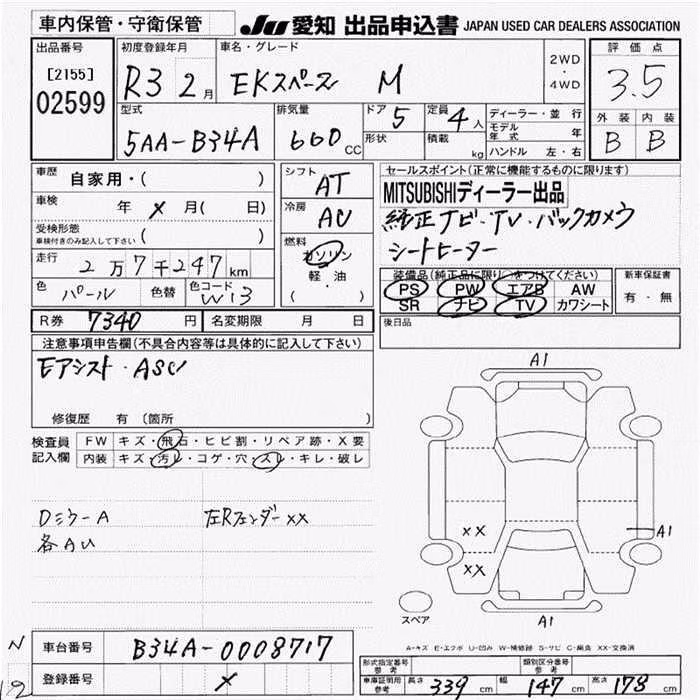 車内保管・守衛保管
JU 愛知 出品申込書 JAPAN USED CAR DEALERS ASSOCIATION
出品番号
[2155]
02599
初度登録年月
R3 2月
車名・グレード
EKスペース M
2WD
・
4WD
評価点
3.5
外装 内装
B B
型式
5AA-B34A
排気量
660 CC
ドア 5
形状
定員 4人
積載 kg
ディーラー・並行
モデル年式 年
ハンドル 左・右
車歴 自家用・( )
車検 年 × 月( 日)
受検形態
車検付きのみ記入して下さい ( )
走行 2万7千247km
色 パール 色替 色コード W13
シフト AT
冷房 AC
燃料
ガソリン
軽・油
( ・ )
セールスポイント(正常に機能するものに限ります)
MITSUBISHIディーラー出品
純正ナビ・TV・バックカメラ
シートヒーター
装備品(純正品に限り○をつけてください)
PS PW エアB AW
SR ナビ TV カワシート
新車保証書
有・無
R券 7340円 名変期限 月 日
後日品
注意事項申告欄(不具合内容等は具体的に記入して下さい)
Eアシスト・ASC
修復歴 有 (箇所 )
検査員記入欄
FW キズ・飛石・ヒビ割・リペア跡・X要
内装 キズ・汚レ・コゲ・穴・スレ・キレ・破レ
Dミラー A 左Rフェンダー XX
各AU
A1
XX
XX
A1
A1
スペア
A-キズ E-エクボ U-凹み W-補修跡 S-サビ C-腐食 XX-交換済
車台番号 B34A-0008717
登録番号 ×
N
12
形式指定番号 参考
類別区分番号 参考
車庫証明用 参考 長さ 339 cm 幅 147 cm 高さ 178 cm